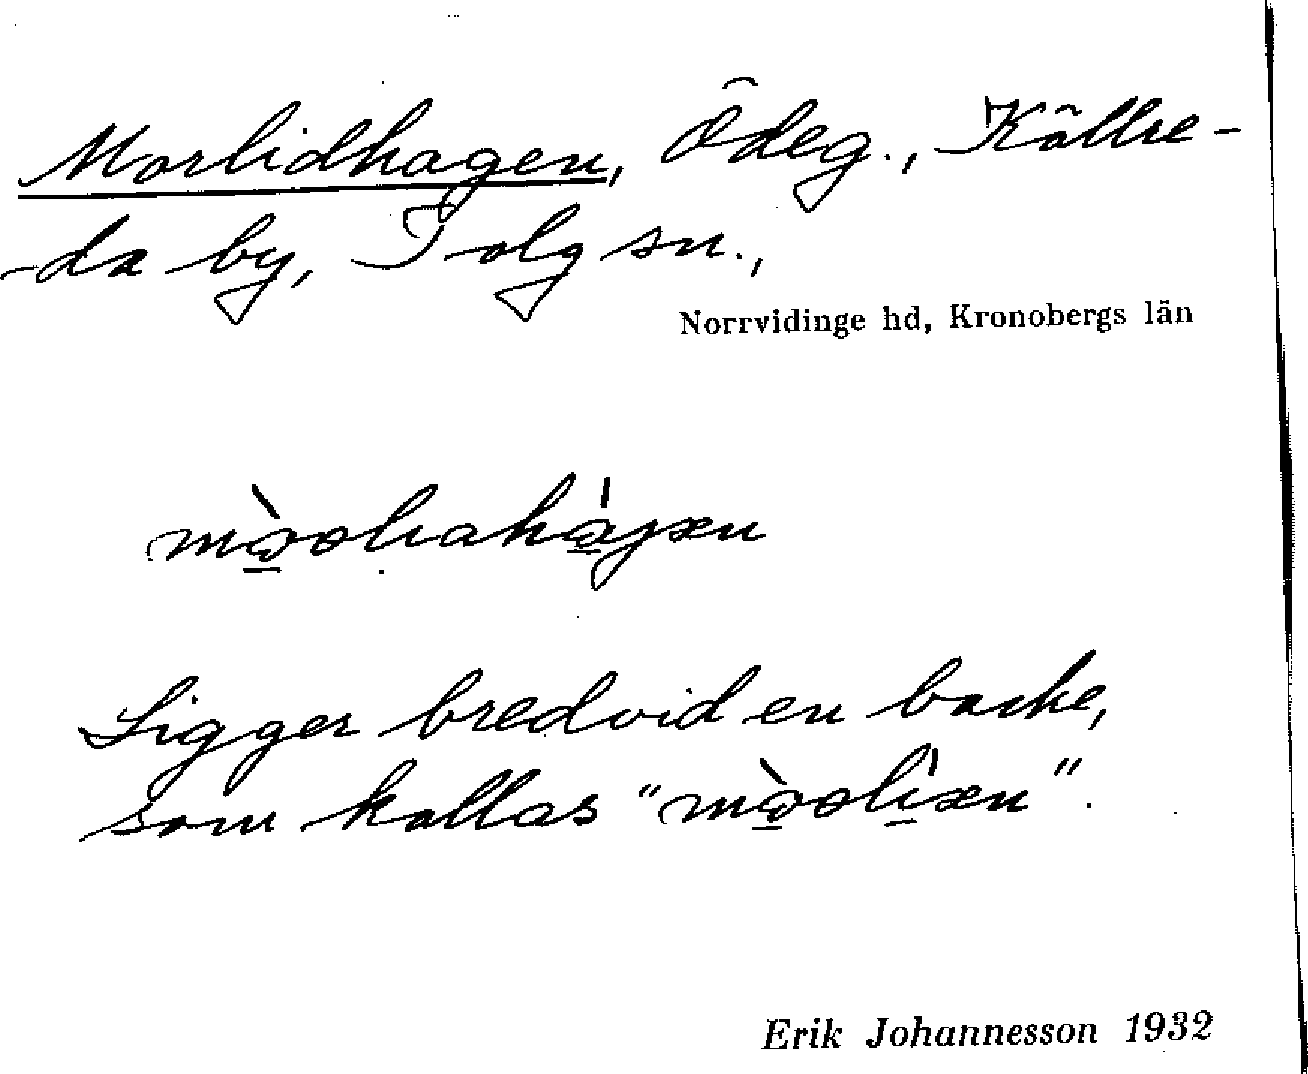 Morlidhagen, Ödeg., Källre-
da by, Tolg sn.,
Norrvidinge hd, Kronobergs län
Ligger bredvid en backe,
som kallas
Erik Johannesson 1932